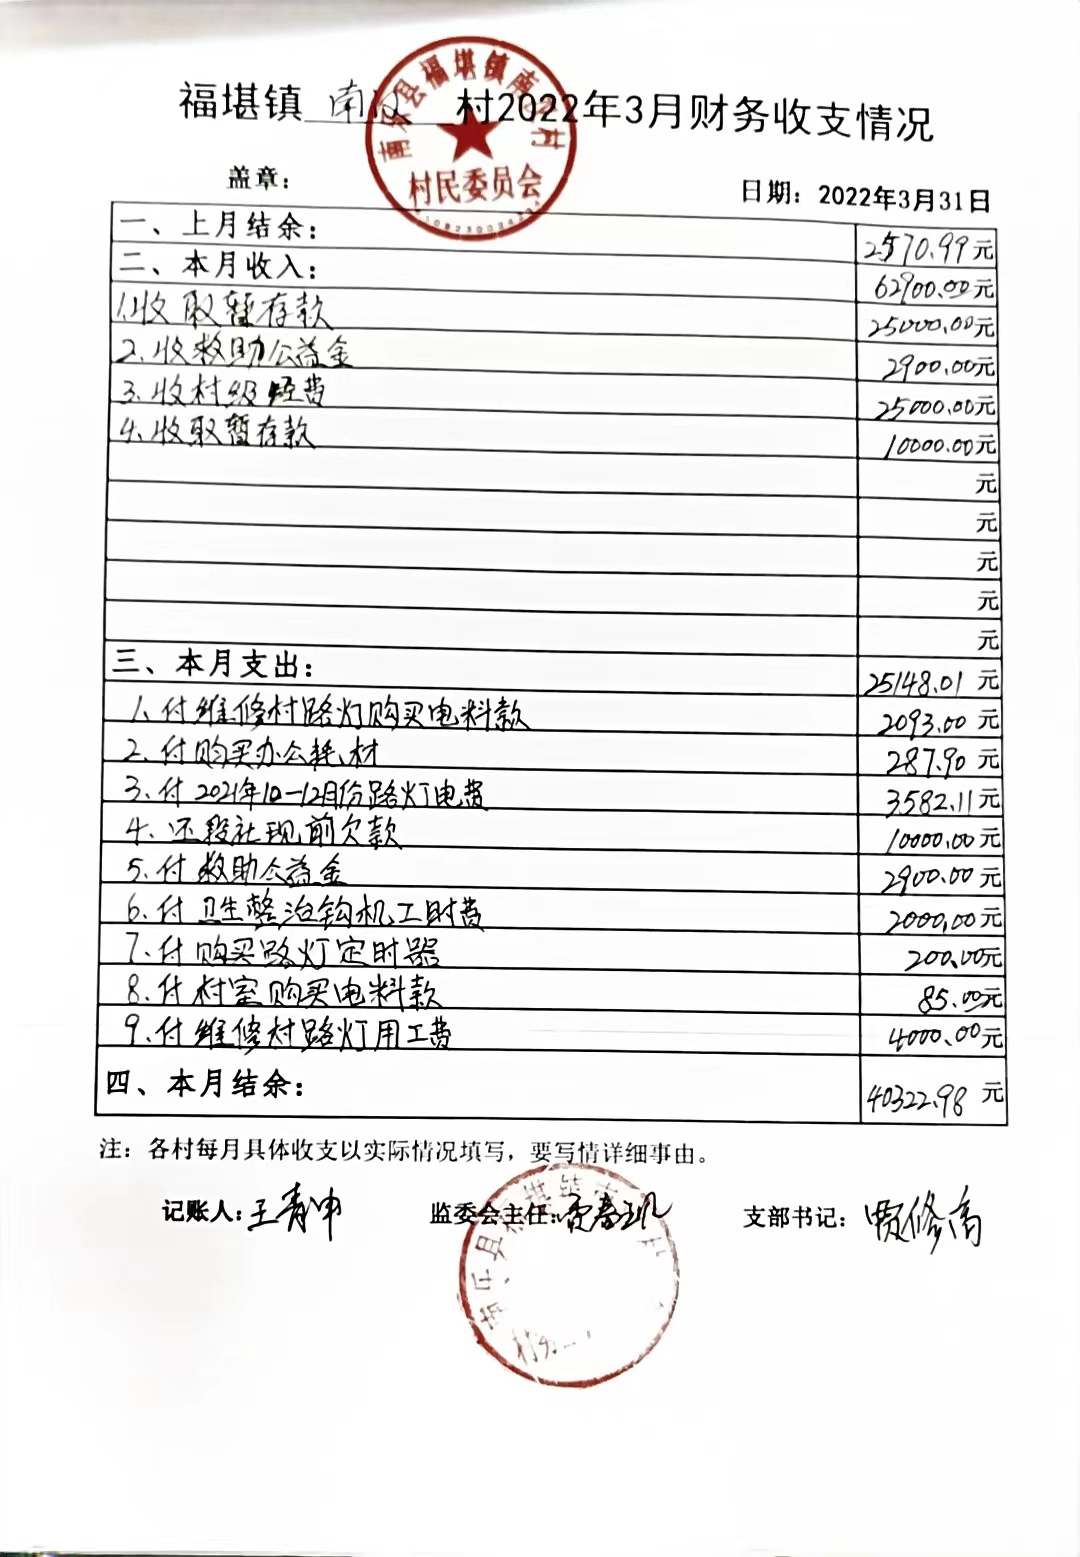 福堪镇 南汉 村2022年3月财务收支情况
南乐县福堪镇南 村
村民委员会
盖章: 日期: 2022年3月31日
一、上月结余: 2570.99元
二、本月收入: 62900.00元
1.收取暂存款 25000.00元
2.收救助公益金 2900.00元
3.收村级经费 25000.00元
4.收取暂存款 10000.00元
元
元
元
元
元
三、本月支出: 25148.01元
1.付维修村路灯购买电料款 2093.00元
2.付购买办公耗材 287.90元
3.付2021年10-12月份路灯电费 3582.11元
4.还段社现前欠款 10000.00元
5.付救助公益金 2900.00元
6.付卫生整治钩机工时费 2000.00元
7.付购买路灯定时器 200.00元
8.付村室购买电料款 85.00元
9.付维修村路灯用工费 4000.00元
四、本月结余: 40322.98元
注: 各村每月具体收支以实际情况填写, 要写情详细事由。
记账人: 王青申 监委会主任: 贾 支部书记: 贾修高